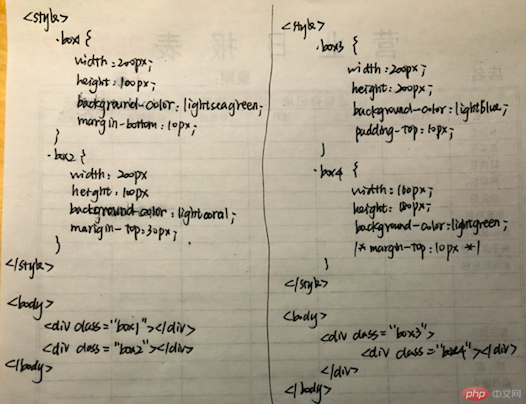 <style>
.box1 {
width:200px;
height:100px;
background-color:lightseagreen;
margin-bottom:10px;
}
.box2 {
width:200px
height:100px
background-color:lightcoral;
margin-top:30px;
}
</style>
<body>
<div class="box1"></div>
<div class="box2"></div>
</body>
<style>
.box3 {
width:200px;
height:200px;
background-color:lightblue;
padding-top:10px;
}
.box4 {
width:100px;
height:100px;
background-color:lightgreen;
/* margin-top:10px */
}
</style>
<body>
<div class="box3">
<div class="box4"></div>
</div>
</body>
营业日报表
php 中文网